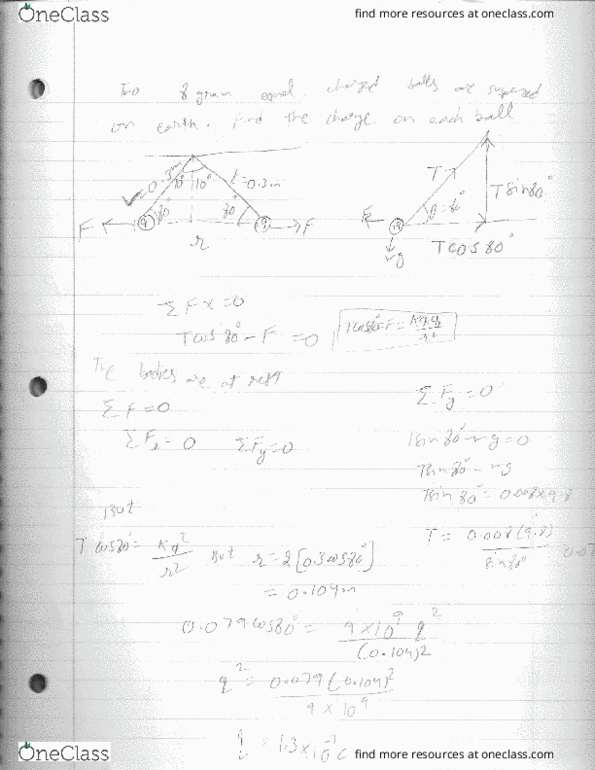 OneClass
find more resources at oneclass.com
Two 8 gram equal charged balls are
on earth. Find the charge on each ball
0.3m
10° 10°
l=0.3m
80°
80°
F
q
q
F
r
T
T sin 80°
F
mg
T cos 80°
Σ F x = 0
T cos 80° - F = 0
The bodies are at rest
Σ F = 0
Σ Fx = 0 Σ Fy = 0
Σ Fy = 0
T sin 80° - mg = 0
T sin 80° = mg
T sin 80° = 0.008 x 9.8
T = 0.008 (9.8)
sin 80°
But
T cos 80° = K q²
r²
But r = 2 [0.3 cos 80°]
= 0.104m
0.079 cos 80° = 9 x 10⁹ q²
(0.104)2
q² = 0.079 (0.104)²
9 x 10⁹
OneClass
find more resources at oneclass.com